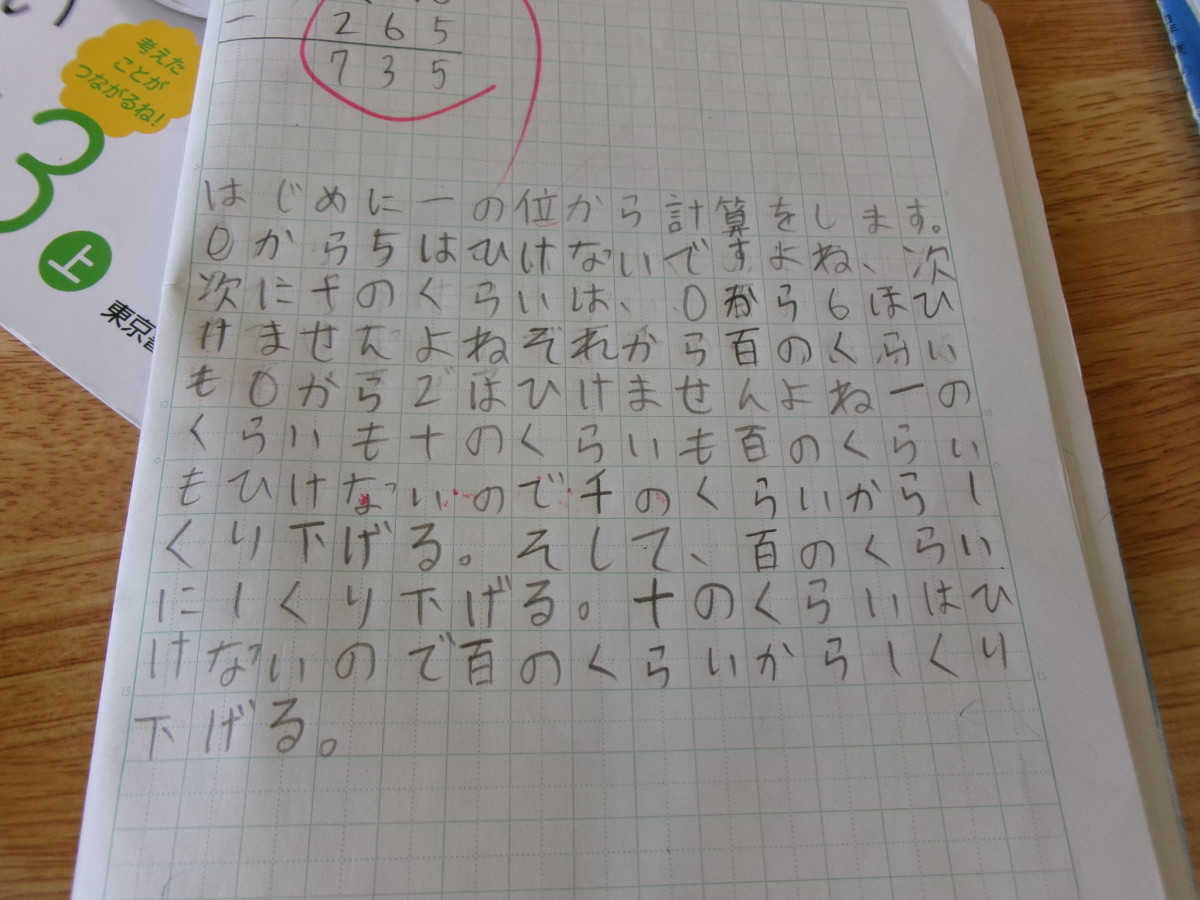 考えた
ことが
つながるね!
3
上
東京
－ 265
735
はじめに一の位から計算をします。
0から5はひけないですよね、次
次に十のくらいは、0から6はひ
けませんよねぞれから百のくらい
も0から2はひけませんよね一の
くらいも十のくらいも百のくらい
もひけないので千のくらいから1
くり下げる。そして、百のくらい
に1くり下げる。十のくらいはひ
けないので百のくらいから1くり
下げる。